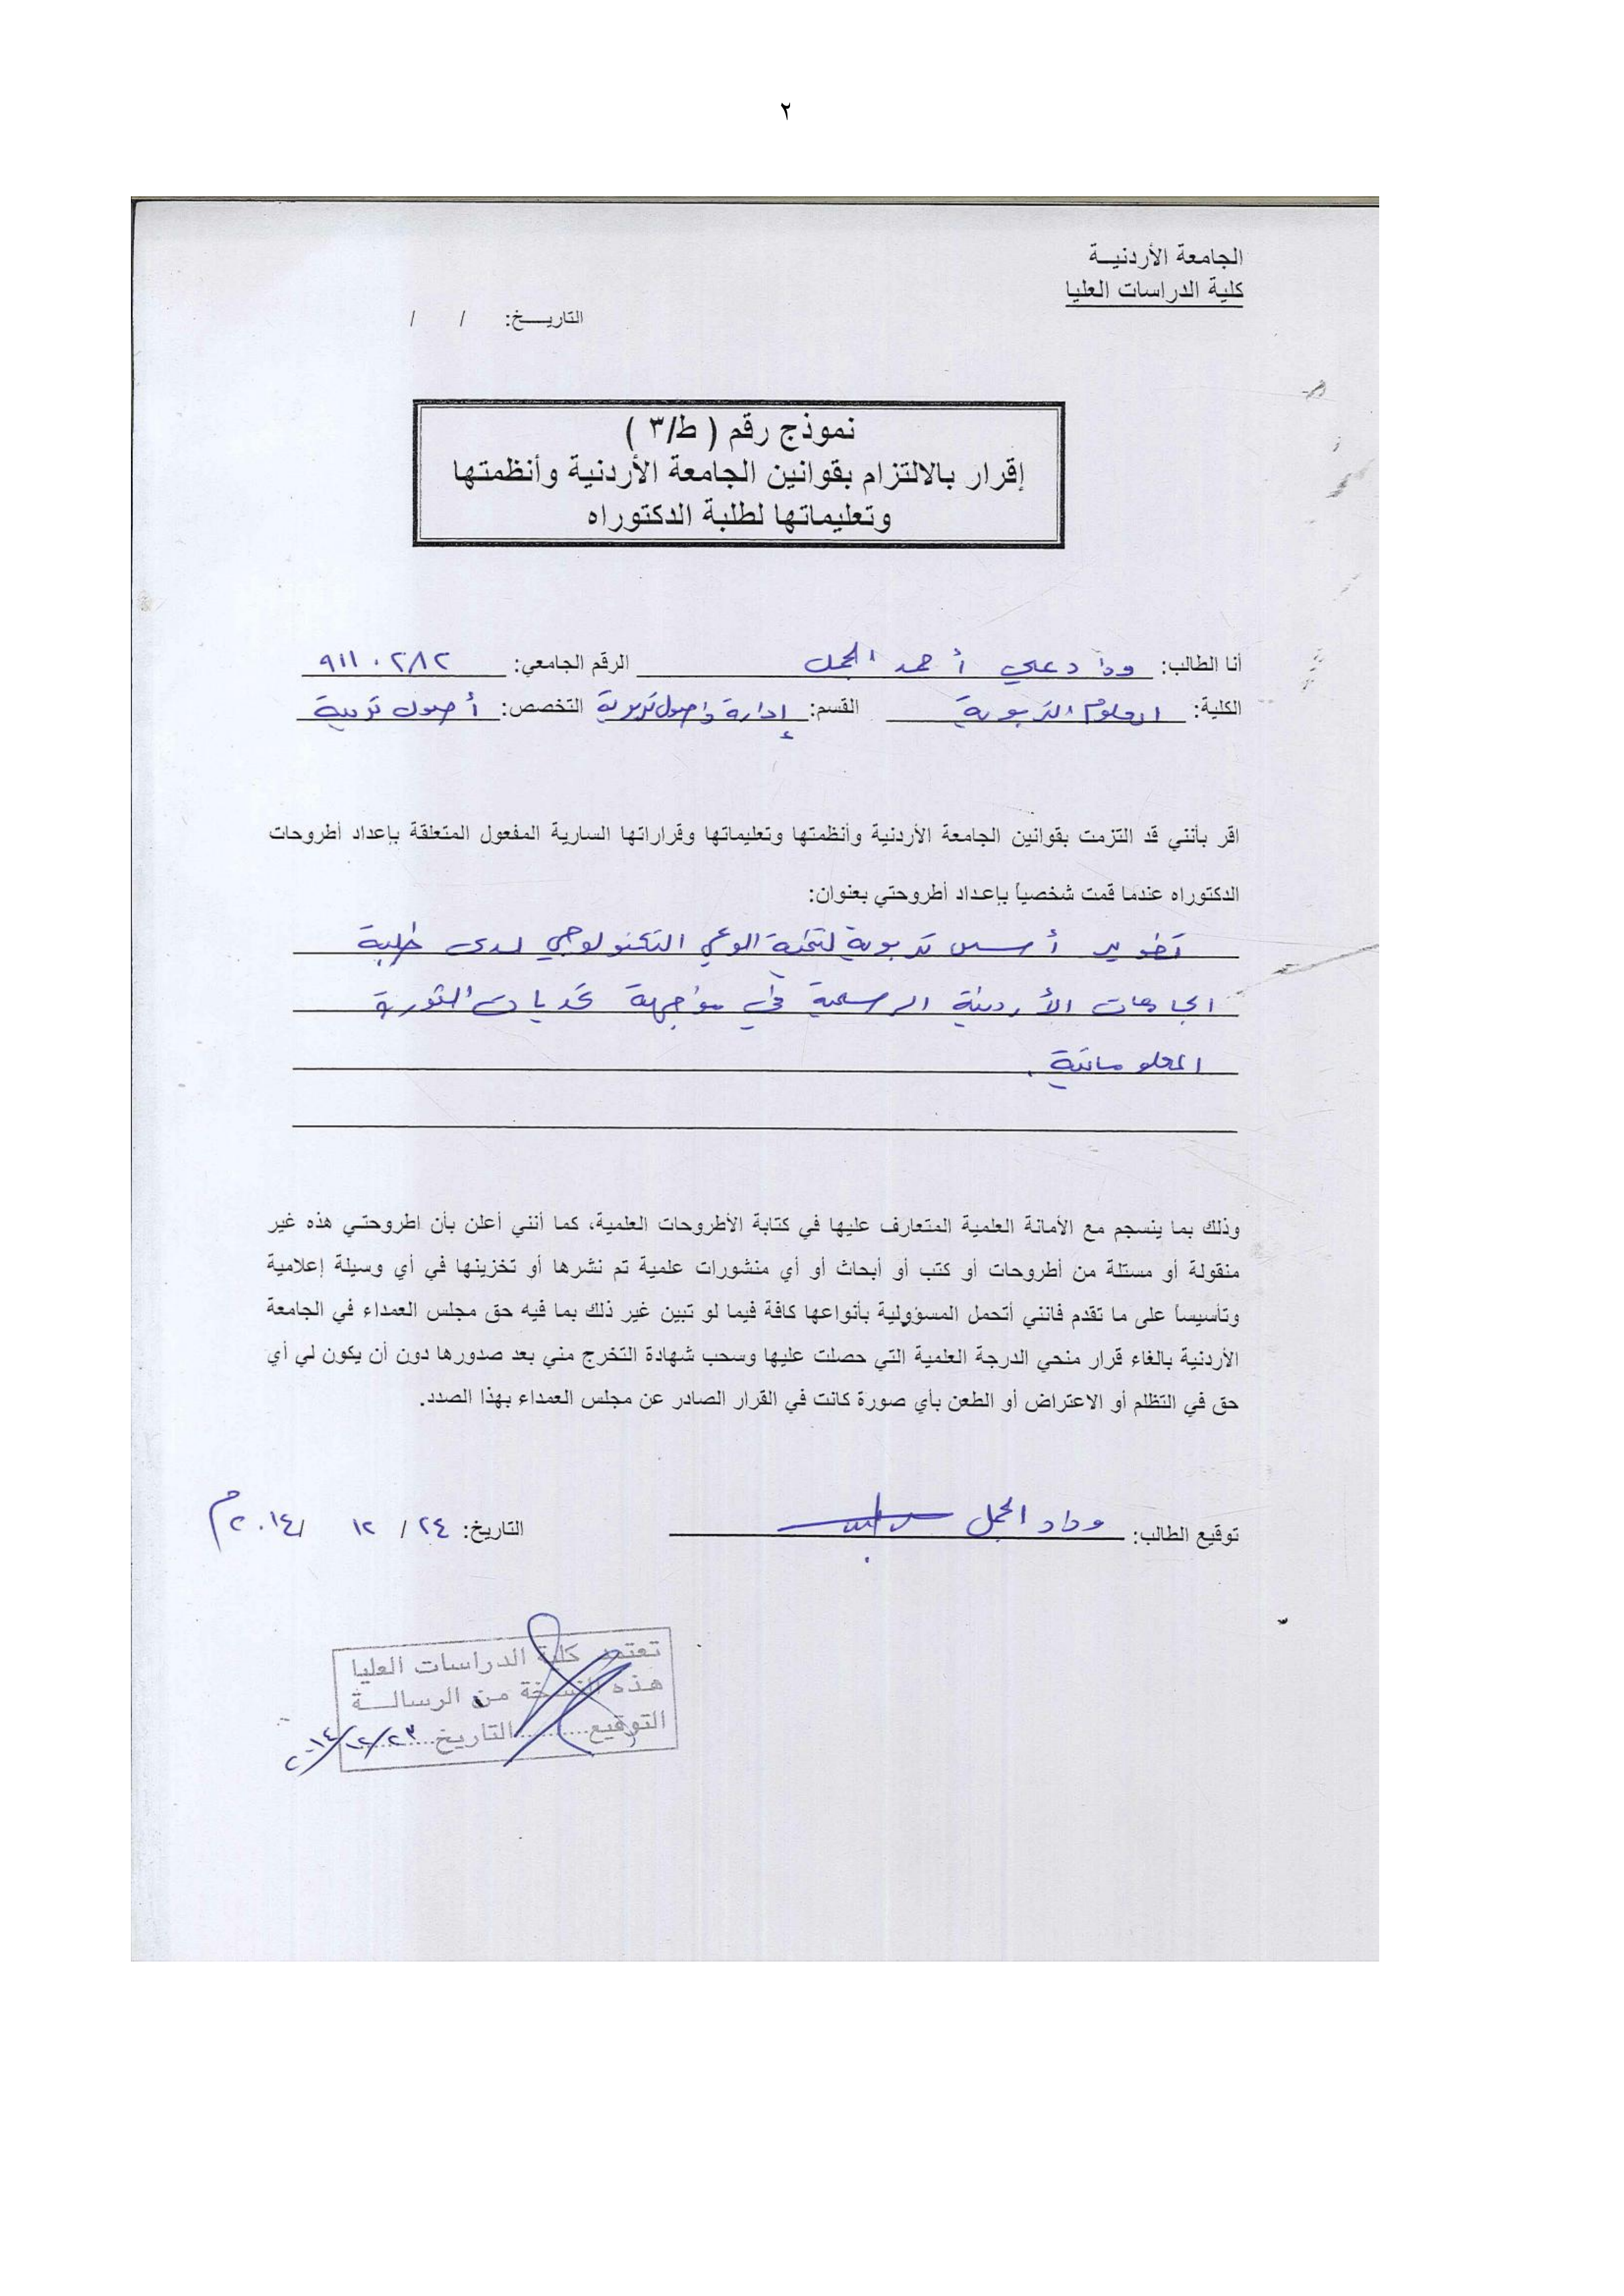 ٢
الجامعة الأردنيـــة
كلية الدراسات العليا
التاريـــخ: / /
نموذج رقم ( ط/٣ )
إقرار بالالتزام بقوانين الجامعة الأردنية وأنظمتها
وتعليماتها لطلبة الدكتوراه
أنا الطالب: وداد علي أحمد الجمل الرقم الجامعي: ٩١١٠٢٨٢
الكلية: العلوم التربوية القسم: إدارة وأصول تربوية التخصص: أصول تربية
اقر بأنني قد التزمت بقوانين الجامعة الأردنية وأنظمتها وتعليماتها وقراراتها السارية المفعول المتعلقة بإعداد أطروحات
الدكتوراه عندما قمت شخصياً بإعداد أطروحتي بعنوان:
تطوير أسس تربوية لتنمية الوعي التكنولوجي لدى طلبة
الجامعات الأردنية الرسمية في مواجهة تحديات الثورة
المعلوماتية .
وذلك بما ينسجم مع الأمانة العلمية المتعارف عليها في كتابة الأطروحات العلمية، كما أنني أعلن بأن اطروحتي هذه غير
منقولة أو مستلة من أطروحات أو كتب أو أبحاث أو أي منشورات علمية تم نشرها أو تخزينها في أي وسيلة إعلامية
وتأسيساً على ما تقدم فانني أتحمل المسؤولية بأنواعها كافة فيما لو تبين غير ذلك بما فيه حق مجلس العمداء في الجامعة
الأردنية بالغاء قرار منحي الدرجة العلمية التي حصلت عليها وسحب شهادة التخرج مني بعد صدورها دون أن يكون لي أي
حق في التظلم أو الاعتراض أو الطعن بأي صورة كانت في القرار الصادر عن مجلس العمداء بهذا الصدد.
توقيع الطالب: وداد الجمل التاريخ: ٢٤ / ١٢ /٢٠١٤م
تعتمد كلية الدراسات العليا
هذه النسخة من الرسالـــة
التوقيع..........التاريخ..٢٣/١٢/٢٠١٤